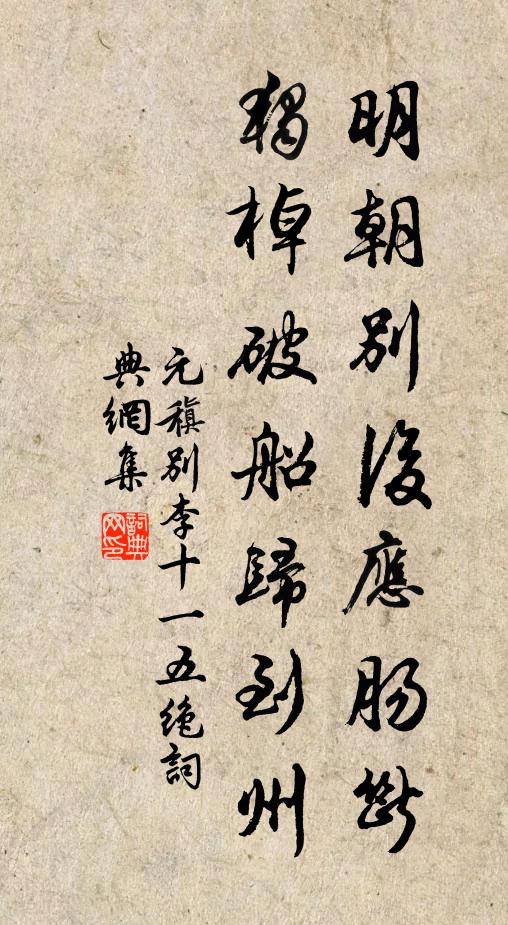 明朝別後應腸斷
獨棹破船歸到州
元稹別李十一五絶詞
典網集
詞典
网印